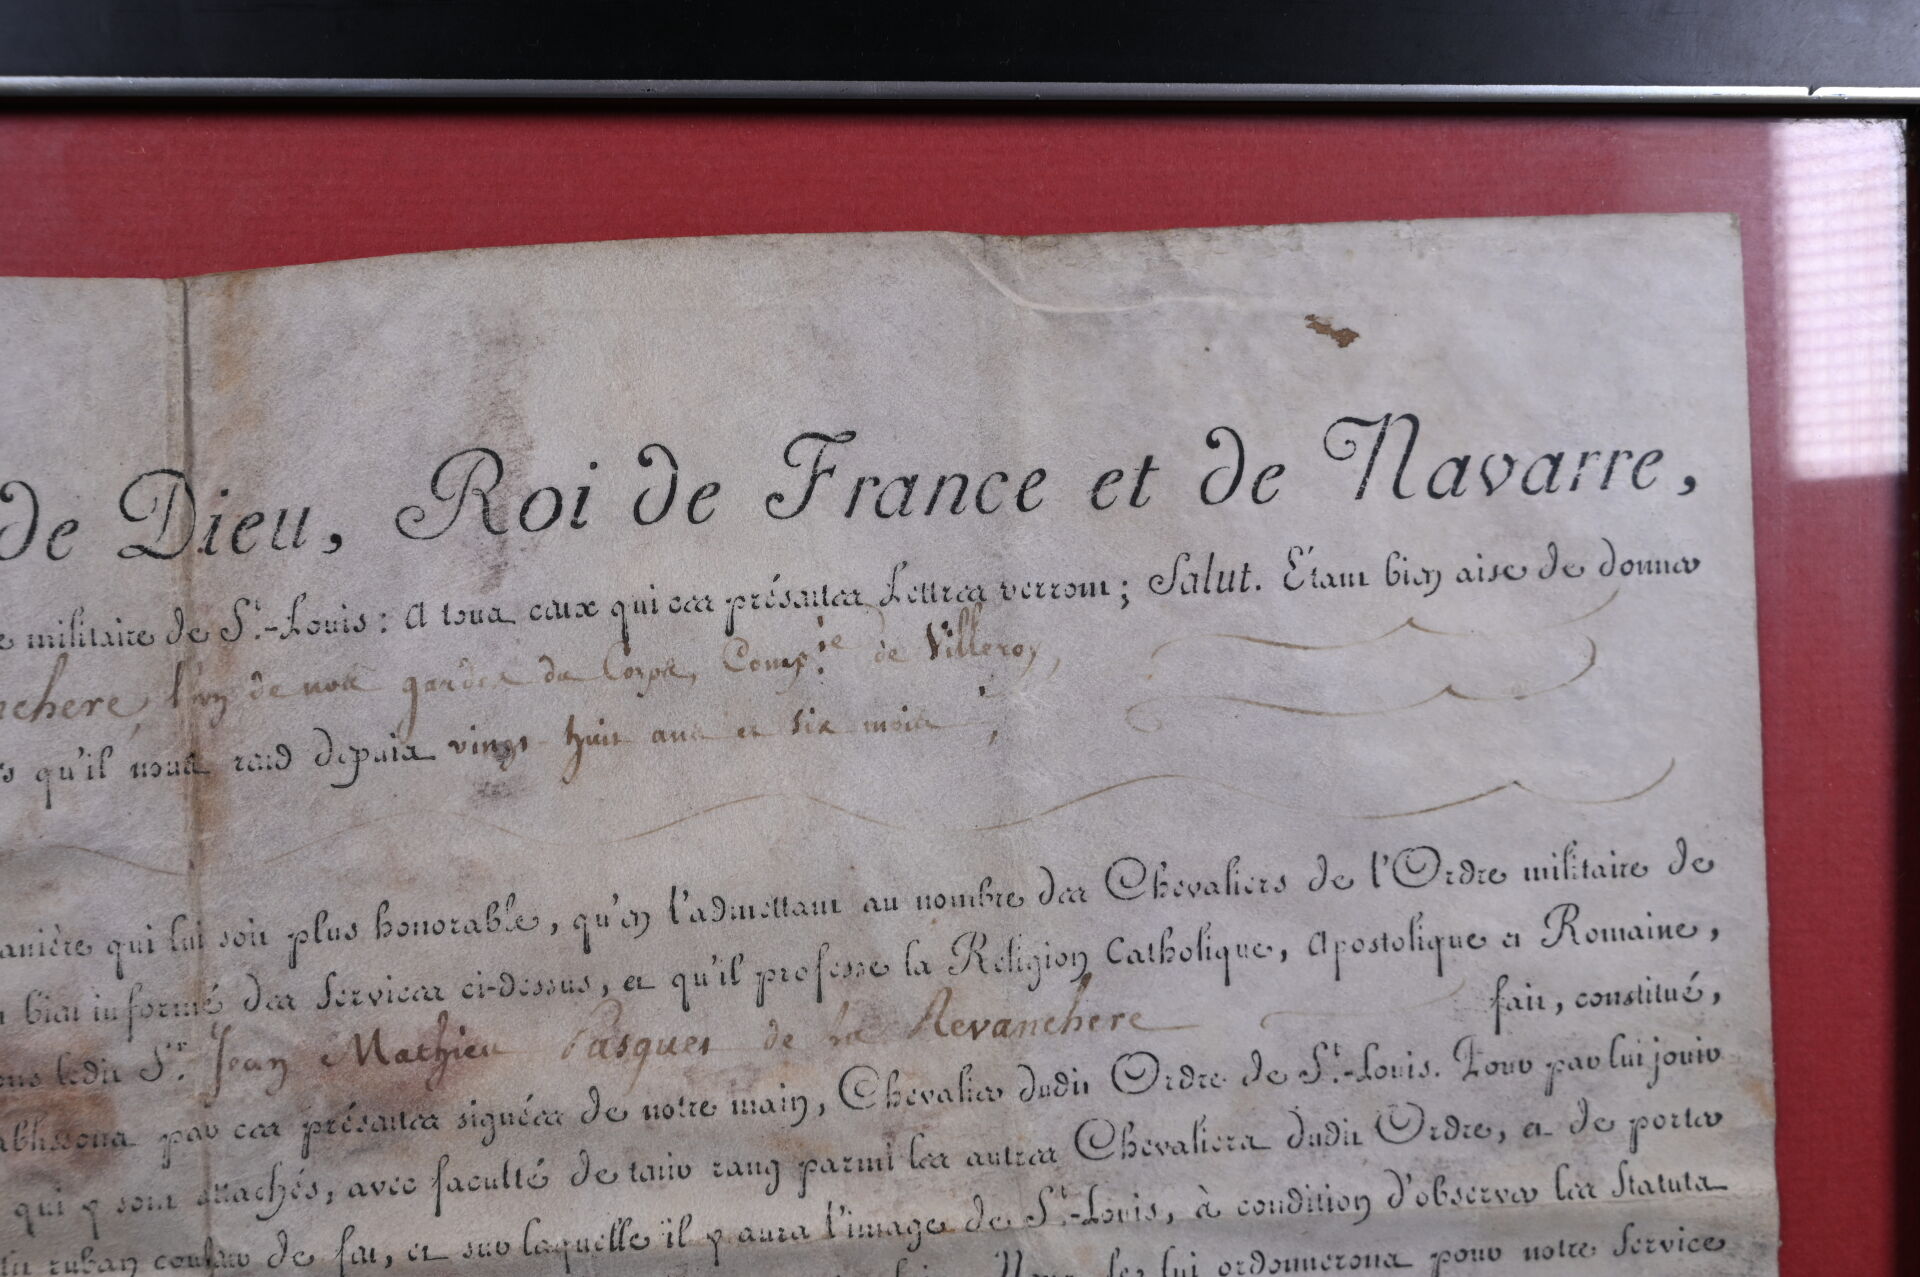 de Dieu, Roi de France et de Navarre,
militaire de St.-Louis: A tous ceux qui ces présentes Lettres verront; Salut. Étant bien aise de donner
chere, l'un de nos gardes du Corps, Comp.ie de Villeroy,
qu'il nous rend depuis vingt huit ans et six mois;
anière qui lui soit plus honorable, qu'en l'admettant au nombre des Chevaliers de l'Ordre militaire de
bien informé des Services ci-dessus, et qu'il professe la Religion Catholique, Apostolique et Romaine,
ons ledit Sr. Jean Mathieu Pasques de la Revanchere fait, constitué,
ablissons par ces présentes signées de notre main, Chevalier dudit Ordre de St.-Louis. Pour par lui jouir
qui y sont attachés, avec faculté de tenir rang parmi les autres Chevaliers dudit Ordre, et de porter
ruban couleur de feu, et sur laquelle il y aura l'image de St.-Louis, à condition d'observer les Statuts
Nous lui ordonnerons pour notre Service